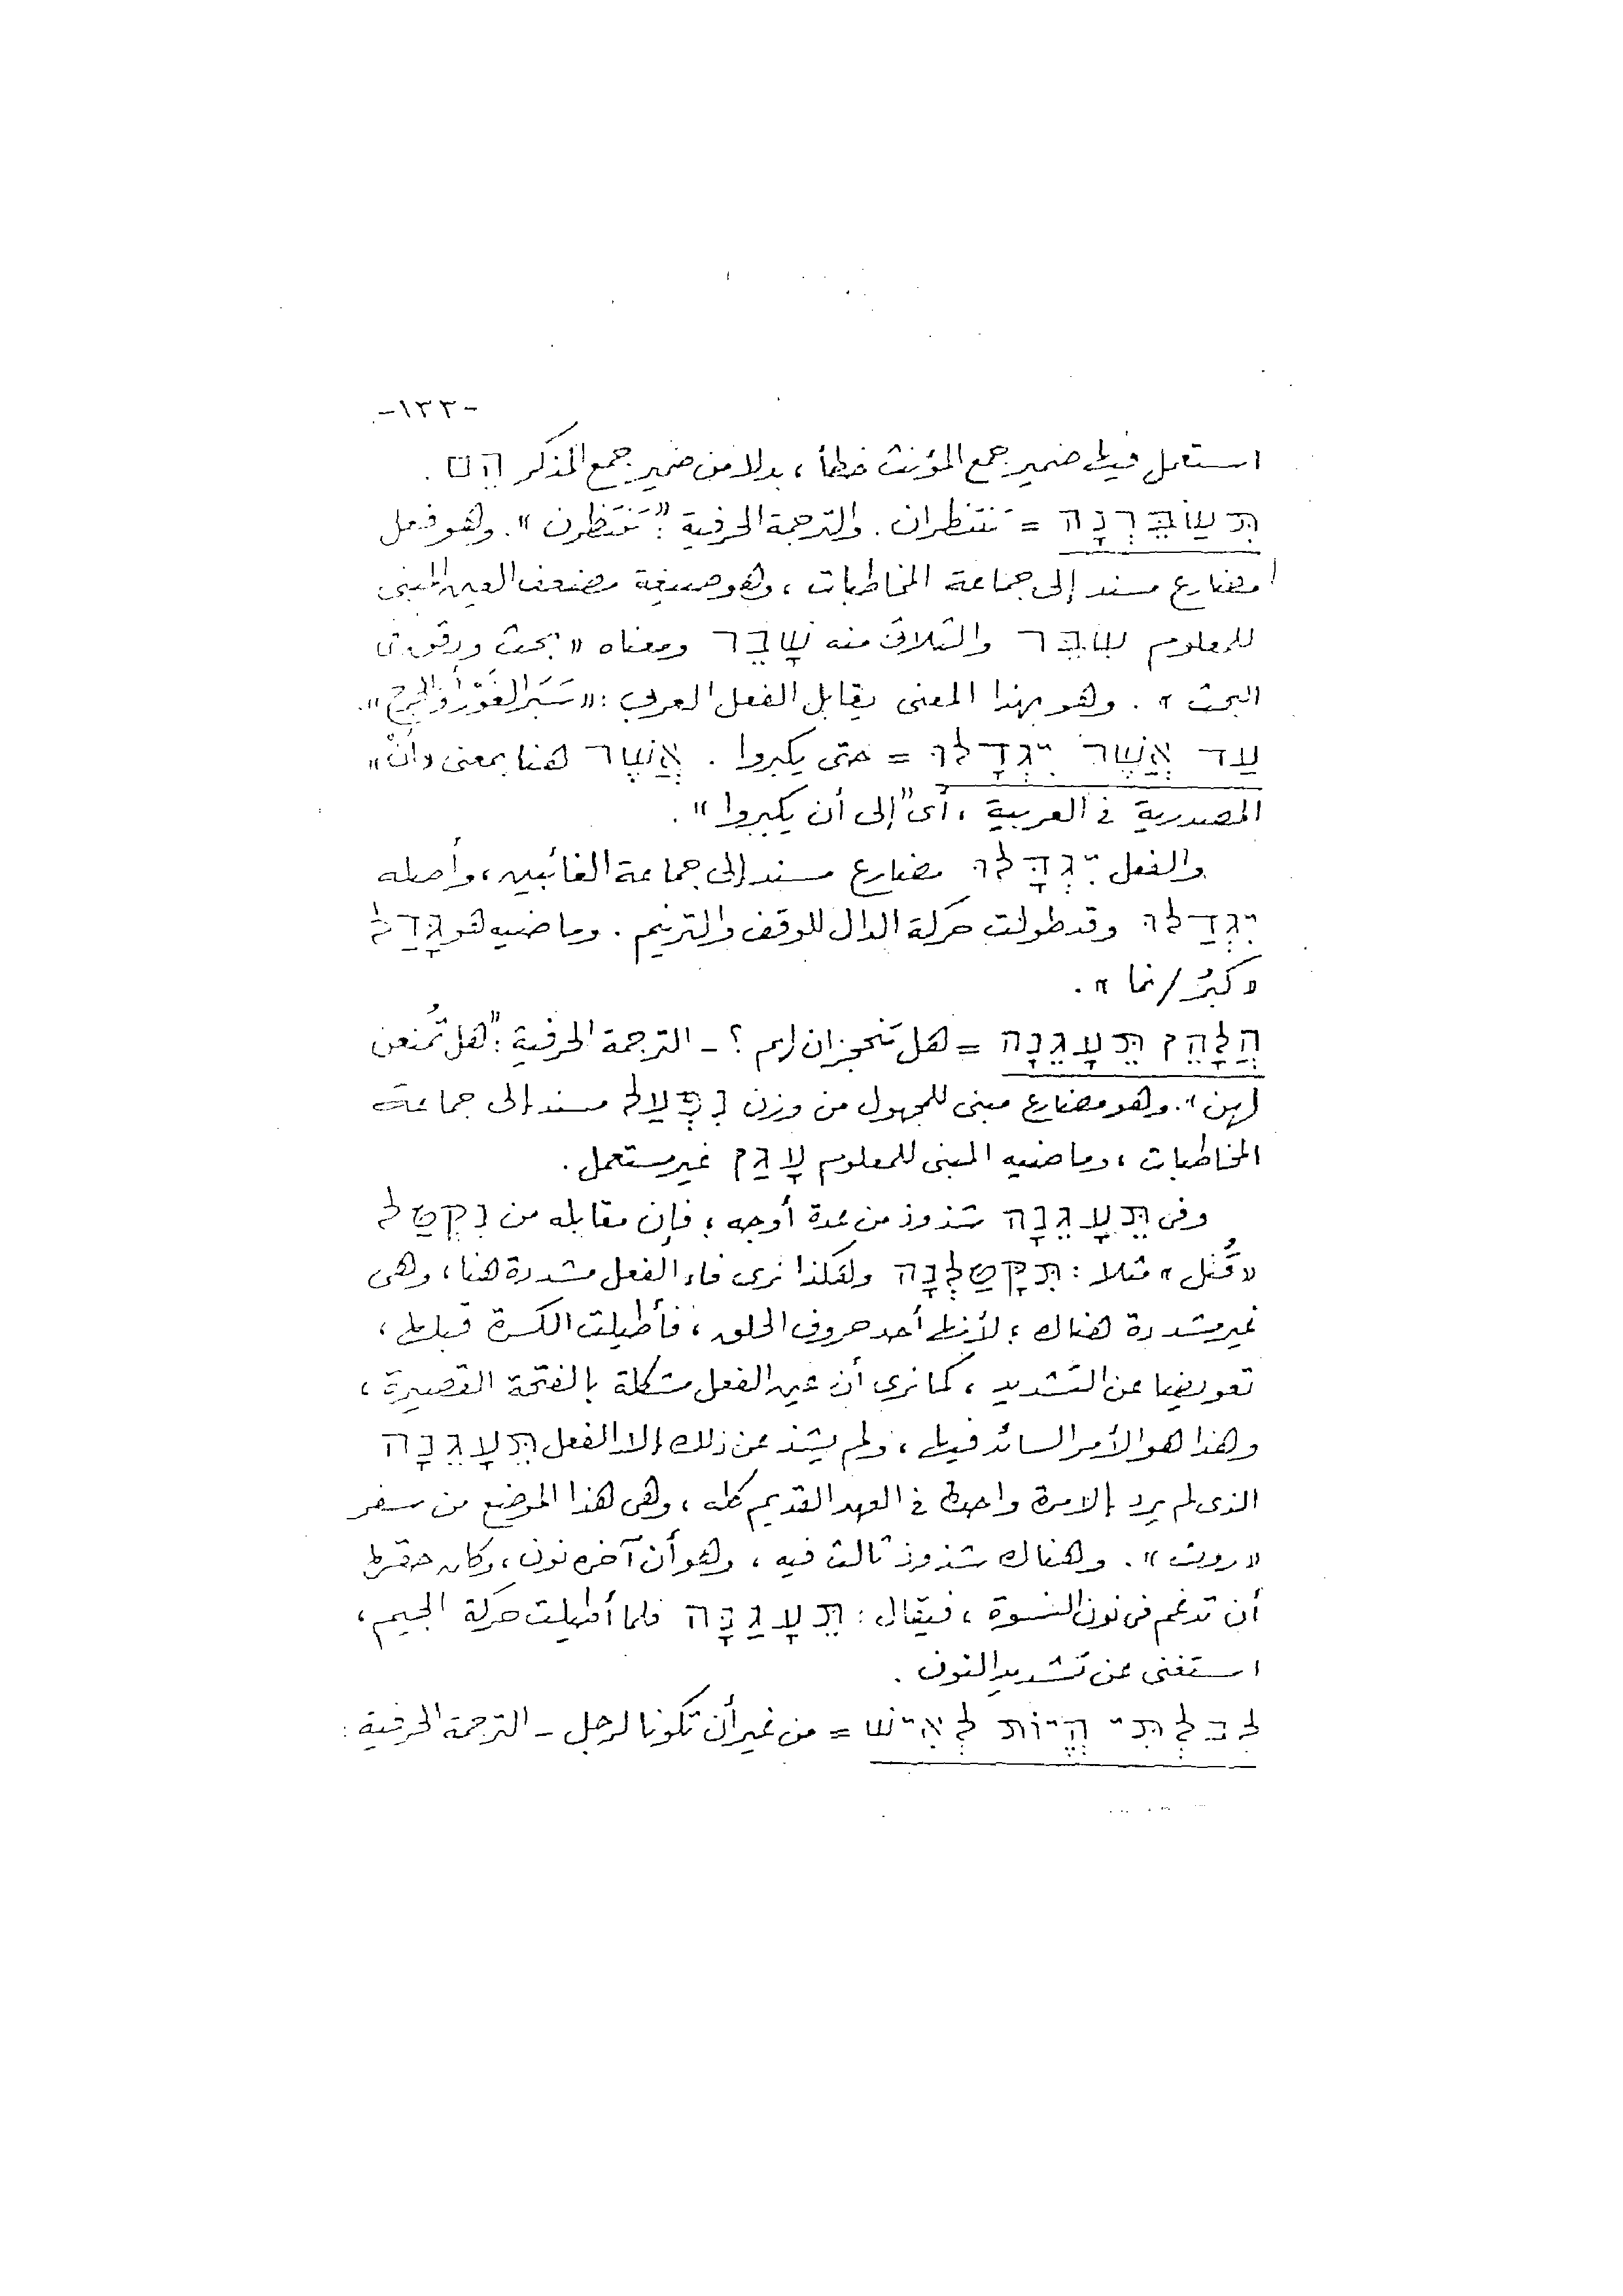 -١٣٣-
استعمل فيها ضمير جمع المؤنث خطأ، بدلا من ضمير جمع المذكر הֵם .
תְּשַׂבֵּרְנָה = تنتظران. والترجمة الحرفية: "تَنتَظِرن". وهو فعل
مضارع مسند إلى جماعة المخاطبات، وهو صيغة مضعف العين المبنى
للمعلوم שִׂבֵּר والثلاثى منه שָׂבַר ومعناه «بحث ودقق فى
البحث». وهو بهذا المعنى يقابل الفعل العربى: «سَبَر الغَوْرَ أو الجرح».
עַד אֲשֶׁר יִגְדָּלוּ = حتى يكبروا. אֲשֶׁר هنا بمعنى «أنْ»
المصدرية فى العربية، أى "إلى أن يكبروا".
والفعل יִגְדָּלוּ مضارع مسند إلى جماعة الغائبين، وأصله
יִגְדַּלוּ وقد طولت حركة الدال للوقف والترنيم. وماضيه هو גָּדַל
«كبُر/نما».
הֲלָהֵן תֵּעָגֵנָה = هل تنحجزان لهم؟ - الترجمة الحرفية: "هل تُمنعن
لهن". وهو مضارع مبنى للمجهول من وزن נִפְעַל مسند إلى جماعة
المخاطبات، وماضيه المبنى للمعلوم עָגַן غير مستعمل.
وفى תֵּעָגֵנָה شذوذ من عدة أوجه؛ فإن مقابله من נִקְטַל
«قُتل» مثلا: תִּקָּטַלְנָה وهكذا نرى فاء الفعل مشددة هنا، وهى
غير مشددة هناك؛ لأنها أحد حروف الحلق، فأطيلت الكسرة قبلها،
تعويضا عن التشديد، كما نرى أن عين الفعل مشكلة بالفتحة القصيرة،
وهذا هو الأمر السائد فيها، ولم يشذ عن ذلك إلا الفعل תֵּעָגֵנָה
الذى لم يرد إلا مرة واحدة فى العهد القديم كله، وهى هذا الموضع من سفر
«روث». وهناك شذوذ ثالث فيه، وهو أن آخره نون، وكان حقها
أن تدغم فى نون النسوة، فيقال: תֵּעָגַנָּה فلما أطيلت حركة الجيم،
استغنى عن تشديد النون.
לְבִלְתִּי הֱיוֹת לְאִישׁ = من غير أن تكونا لرجل - الترجمة الحرفية: